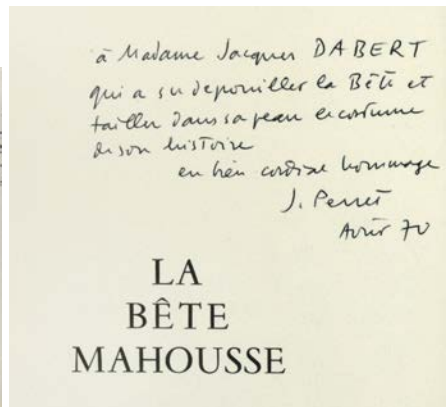 à Madame Jacques DABERT
qui a su depouiller la Bête et
tailler dans sa peau le costume
de son histoire
en bien cordial hommage
J. Perret
Avril 70
LA
BÊTE
MAHOUSSE